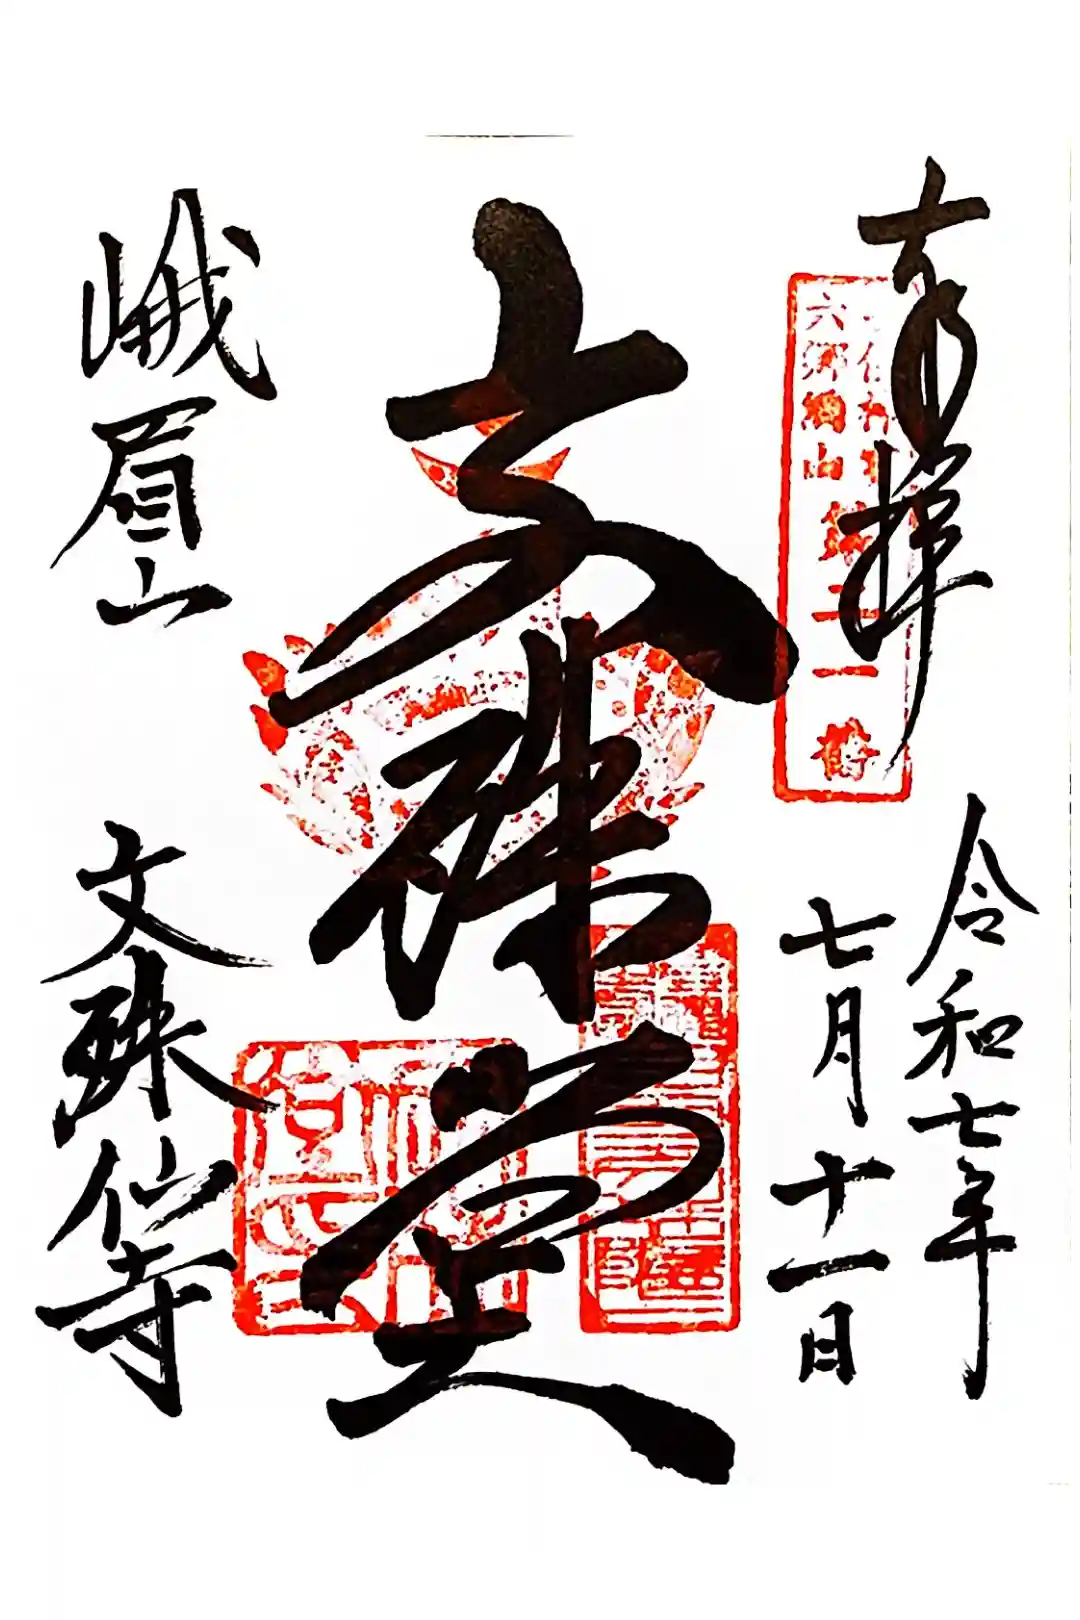 奉拝
六郷満山
第三一番
令和七年
七月十一日
文殊堂
峨眉山
文殊仙寺